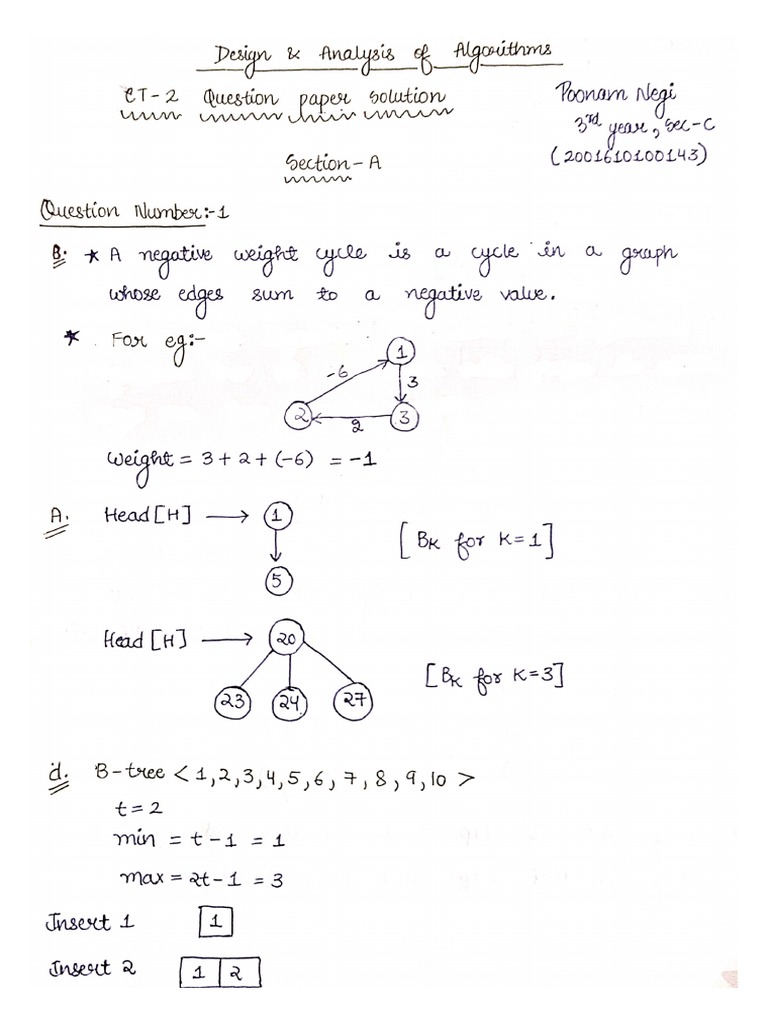 Design & Analysis of Algorithms
CT-2 Question paper solution
Poonam Negi
3rd year, Sec-C
(2001610100143)
Section-A
Question Number:-1
B. * A negative weight cycle is a cycle in a graph
whose edges sum to a negative value.
* For eg:-
1
-6
3
2
2
3
Weight = 3 + 2 + (-6) = -1
A. Head [H] → 1
[BK for K=1]
5
Head [H] → 20
[BK for K=3]
23 24 27
d. B-tree < 1, 2, 3, 4, 5, 6, 7, 8, 9, 10 >
t = 2
min = t - 1 = 1
max = 2t - 1 = 3
Insert 1 1
Insert 2 1 2